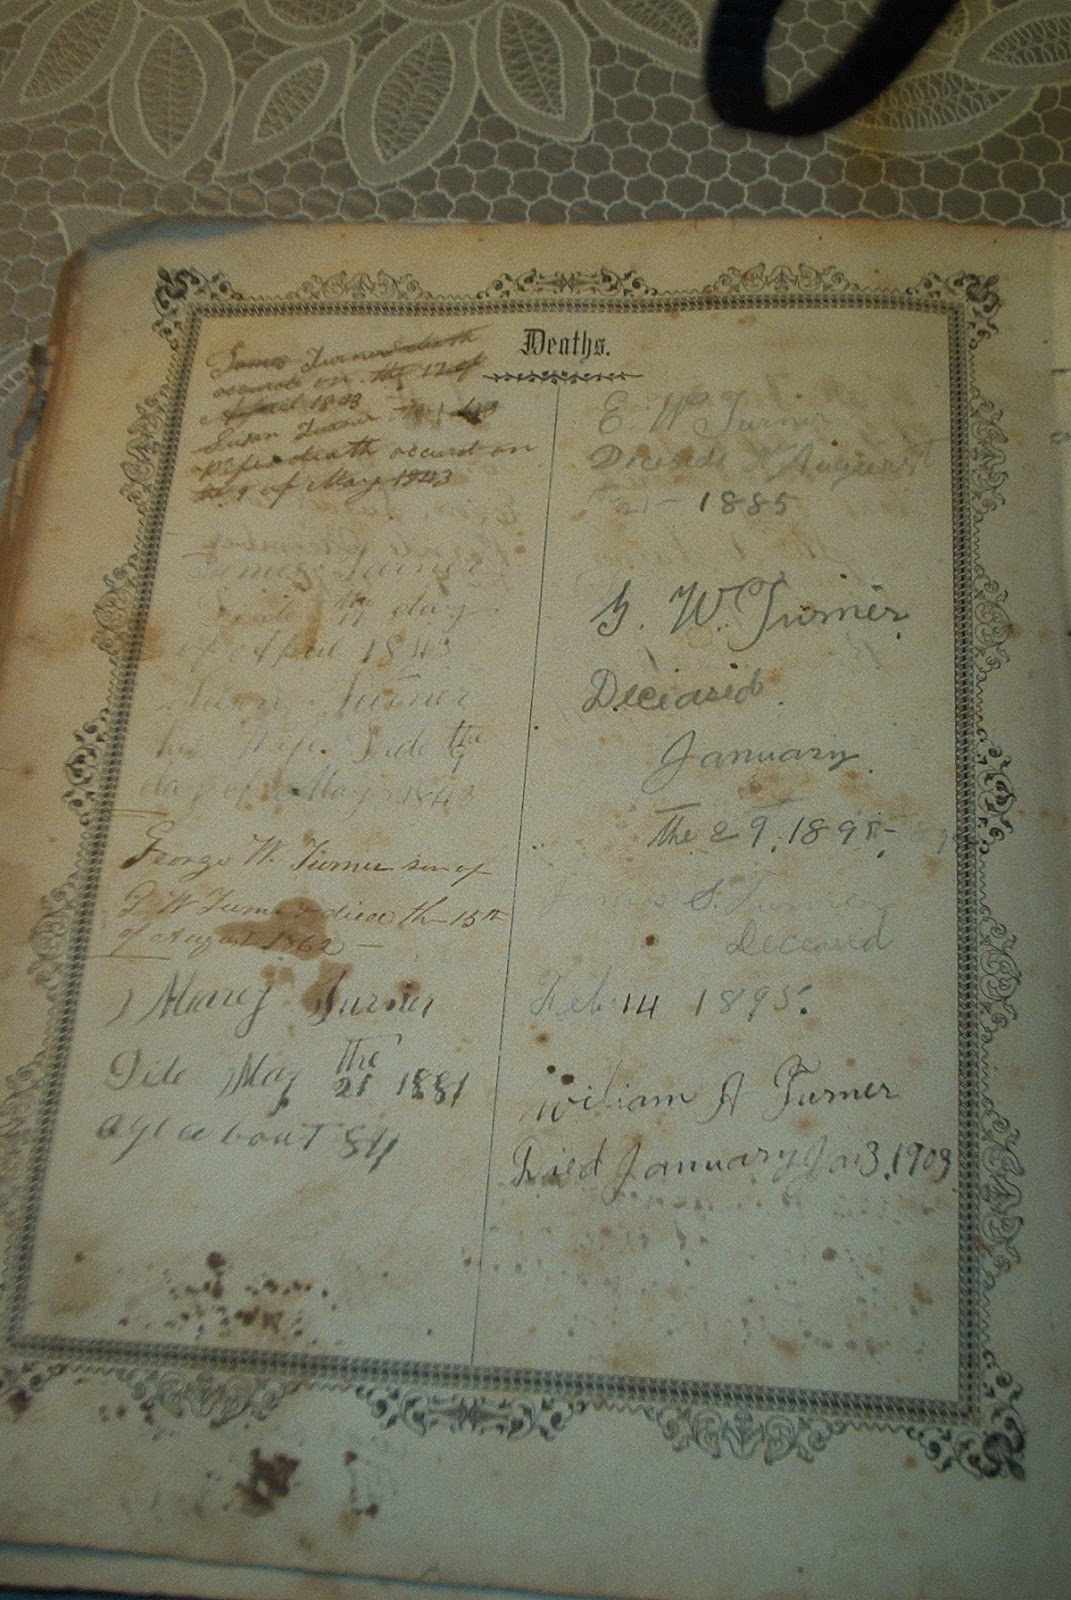 Deaths.
James Turner death
occurd on the 17 of
April 1843
Susan Turner
death occurd on
the 9 of May 1843
James Turner
Dide 17 day
of April 1843
Susan Turner
his Wife Dide the
9
day of May 1843
George W. Turner son of
W Turner died the 15th
of August 1862
Marey Turner
Dide May the
21 1881
age about 84
E. W Turner
Deceased August
21 - 1885
G. W. Turner.
Deceased.
January.
The 29, 1895
James S. Turner
Deceased
Feb 14 1895.
William A Turner
Died January Jan 3, 1903